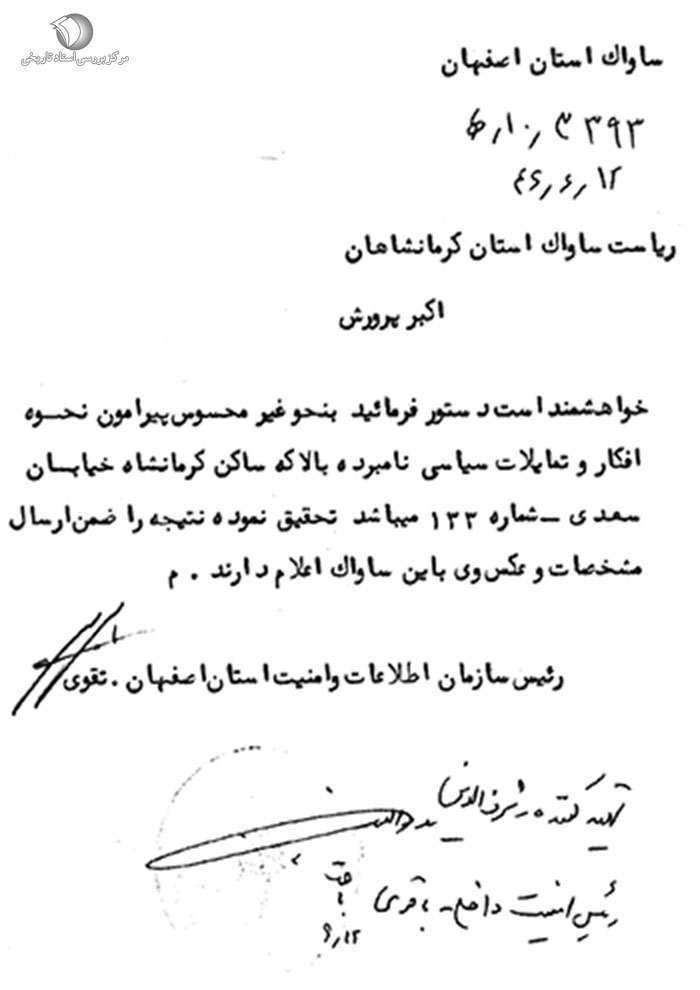 مرکز بررسی اسناد تاریخی
ساواک استان اصفهان
۳۳۹۳ / ۱۰ هـ
۴۶/۶/۱۲
ریاست ساواک استان کرمانشاهان
اکبر پرورش
خواهشمند است دستور فرمائید بنحو غیر محسوس پیرامون نحوه
افکار و تمایلات سیاسی نامبرده بالا که ساکن کرمانشاه خیابان
سعدی – شماره ۱۳۳ میباشد تحقیق نموده نتیجه را ضمن ارسال
مشخصات و عکس وی باین ساواک اعلام دارند . م
رئیس سازمان اطلاعات و امنیت استان اصفهان . تقوی
تهیه کننده شرف الدین
رئیس امنیت داخلی باقری
۶/۱۲